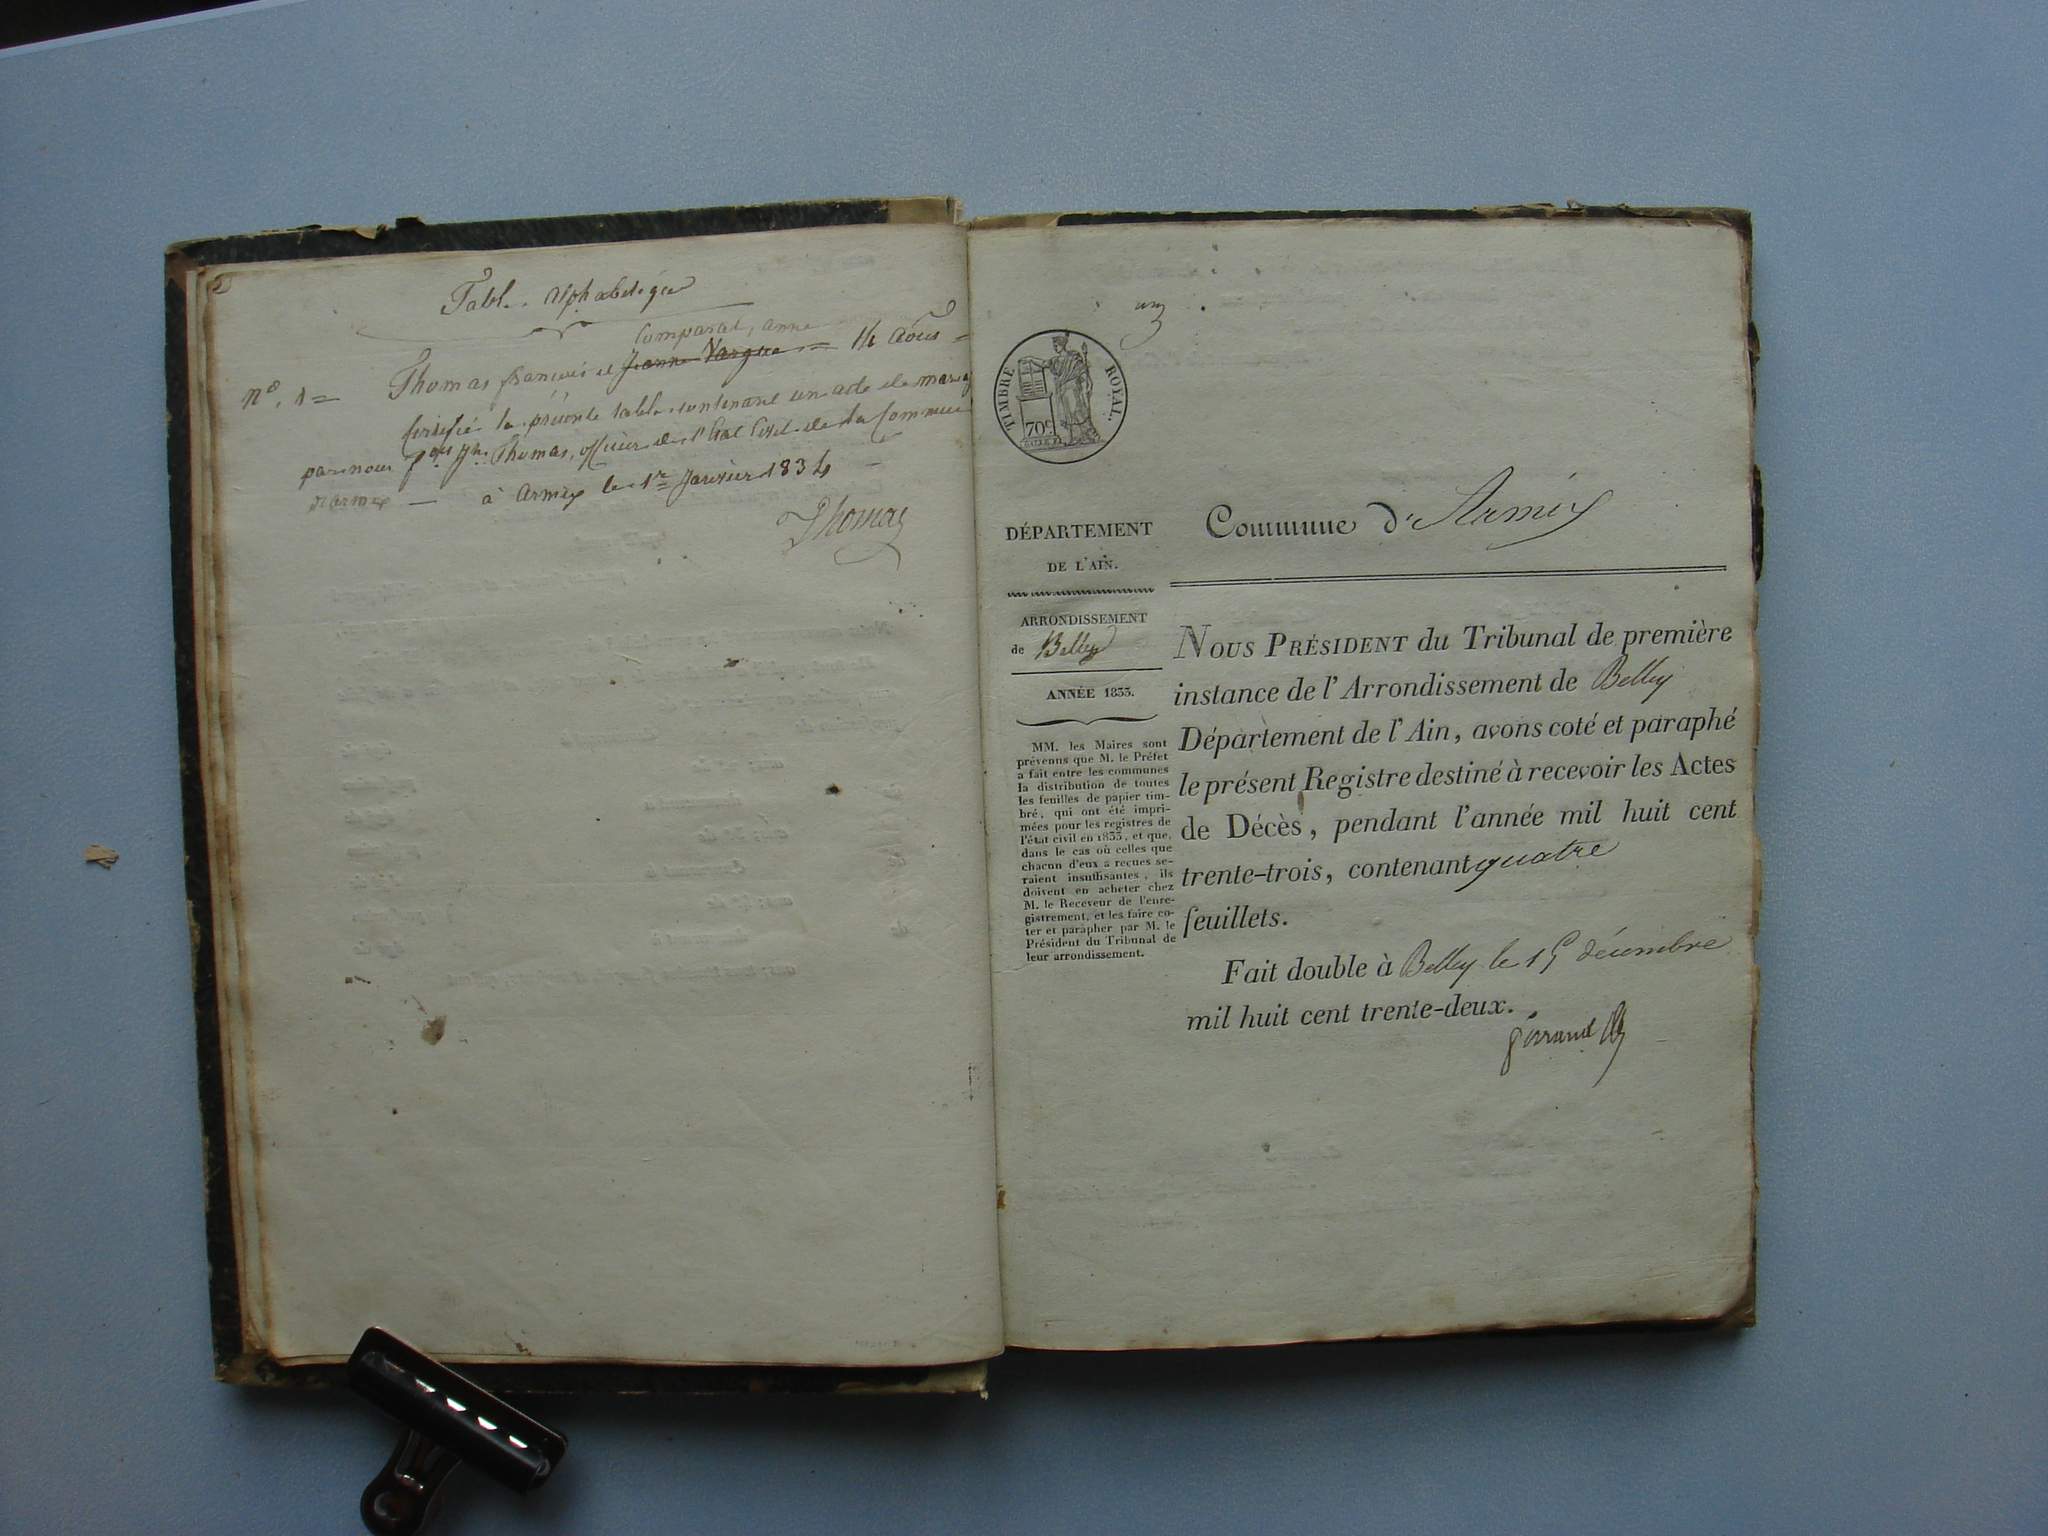 Table alphabétique
Comparat, anne
nº. 1 = Thomas françois et Jeanne Vargue = 14 Aoûs =
Certifié la présente table contenant un acte de mariag
par nous Thomas, officier de l'Etat Civil de la Commune
d'armix — à armix le 1er Janvier 1834 —
Thomas
un
TIMBRE ROYAL.
70c
Commune d'Armix
DÉPARTEMENT
DE L'AIN.
ARRONDISSEMENT
de Belley
ANNÉE 1833.
MM. les Maires sont
prévenus que M. le Préfet
a fait entre les communes
la distribution de toutes
les feuilles de papier tim-
bré, qui ont été impri-
mées pour les registres de
l'état civil en 1833, et que,
dans le cas où celles que
chacun d'eux a reçues se-
raient insuffisantes, ils
doivent en acheter chez
M. le Receveur de l'enre-
gistrement, et les faire co-
ter et parapher par M. le
Président du Tribunal de
leur arrondissement.
NOUS PRÉSIDENT du Tribunal de première
instance de l'Arrondissement de Belley
Département de l'Ain, avons coté et paraphé
le présent Registre destiné à recevoir les Actes
de Décès, pendant l'année mil huit cent
trente-trois, contenant quatre
feuillets.
Fait double à Belley le 15 décembre
mil huit cent trente-deux.